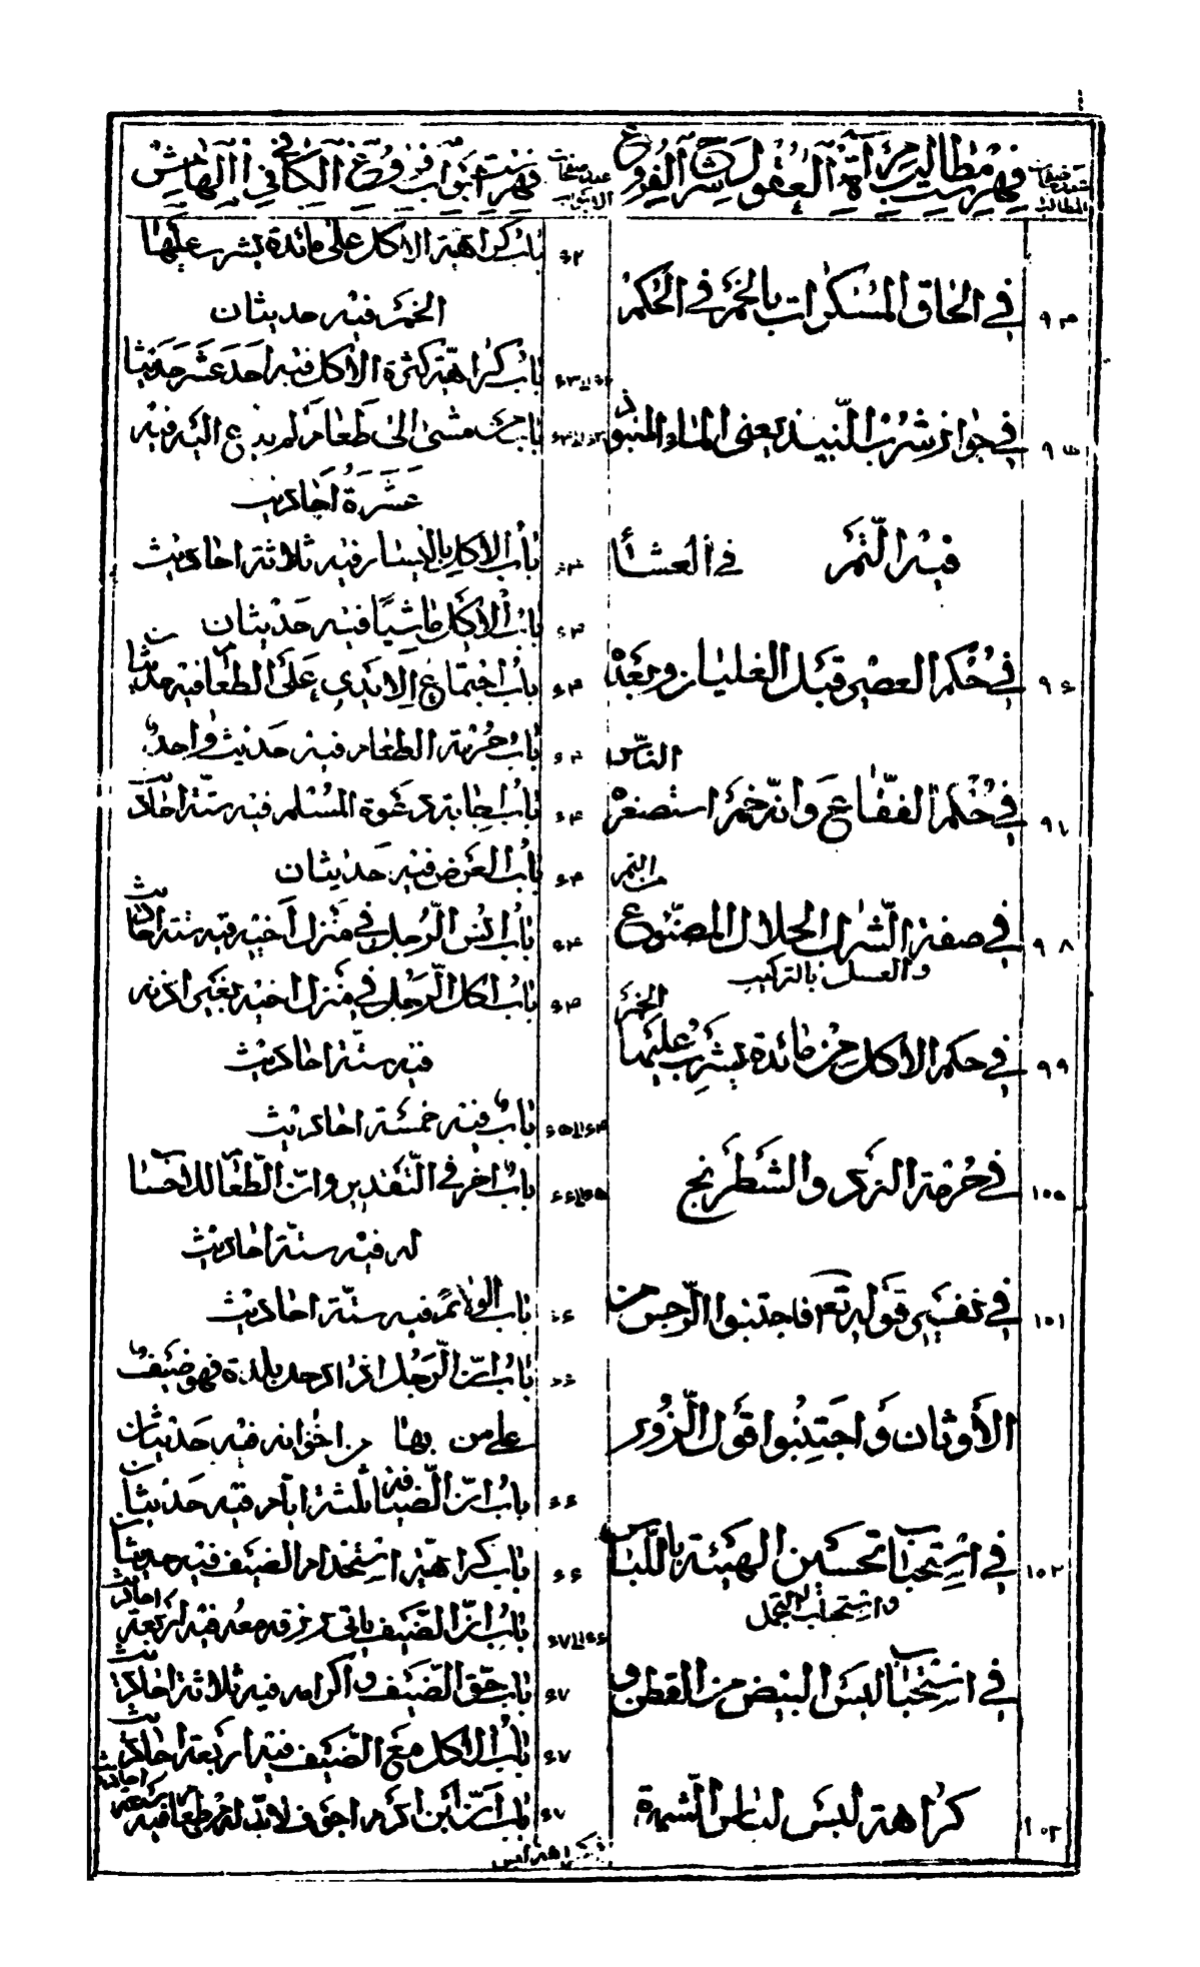 فهرست مطالب مرآة العقول في شرح الفروع
عدد صفحات المطالب
في الحاق المسكرات بالخمر في الحكم ٩٣
في جواز شرب النبيذ يعنى الماء المنبوذ
فيه التمر في العشاء
في حكم العصير قبل الغليان وبعده ٩٤
في حكم الفقاع وانه خمر استصغره الناس ٩٧
في صفة الشراب الحلال المصنوع من التمر والعسل بالتركيب ٩٨
في حكم الاكل من مائدة يشرب عليها الخمر ٩٩
في حرمة النرد والشطرنج ١٠٠
في تفسير قوله تع فاجتنبوا الرجس من ١٠١
الأوثان واجتنبوا قول الزور
في استحباب تحسين الهيئة باللباس واستحباب التجمل ١٠٢
في استحباب لبس البيض من القطن و
كراهة لبس لباس الشهرة ١٠٣
فهرست ابواب فروع الكافي في الهامش
عدد صفحات الابواب
باب كراهية الاكل على مائدة يشرب عليها
الخمر فيه حديثان
باب كراهية كثرة الاكل فيه احد عشر حديثا
باب من مشى الى طعام لم يدع اليه فيه
عشرة احاديث
باب الاكل باليسار فيه ثلاثة احاديث
باب الاكل ماشيا فيه حديثان
باب اجتماع الايدى على الطعام فيه حديثان
باب حرمة الطعام فيه حديث واحد
باب اجابة دعوة المسلم فيه ستة احاديث
باب العرض فيه حديثان
باب انس الرجل في منزل اخيه فيه ستة احاديث
باب اكل الرجل في منزل اخيه بغير اذنه
فيه ستة احاديث
باب فيه خمسة احاديث
باب اخر في التقدير وان الطعام لا حساب
له فيه ستة احاديث
باب الولائم فيه ستة احاديث
باب ان الرجل اذا دخل بلدة فهو ضيف
على من بها من اخوانه فيه حديثان
باب ان الضيافة ثلثة ايام فيه حديثان
باب كراهية استخدام الضيف فيه حديثان
باب ان الضيف ياتى رزقه معه فيه اربعة احاديث
باب حق الضيف واكرامه فيه ثلاثة احاديث
باب الاكل مع الضيف فيه اربعة احاديث
باب ان ابن ادم اجوف لا بد له من طعام فيه سبعة احاديث